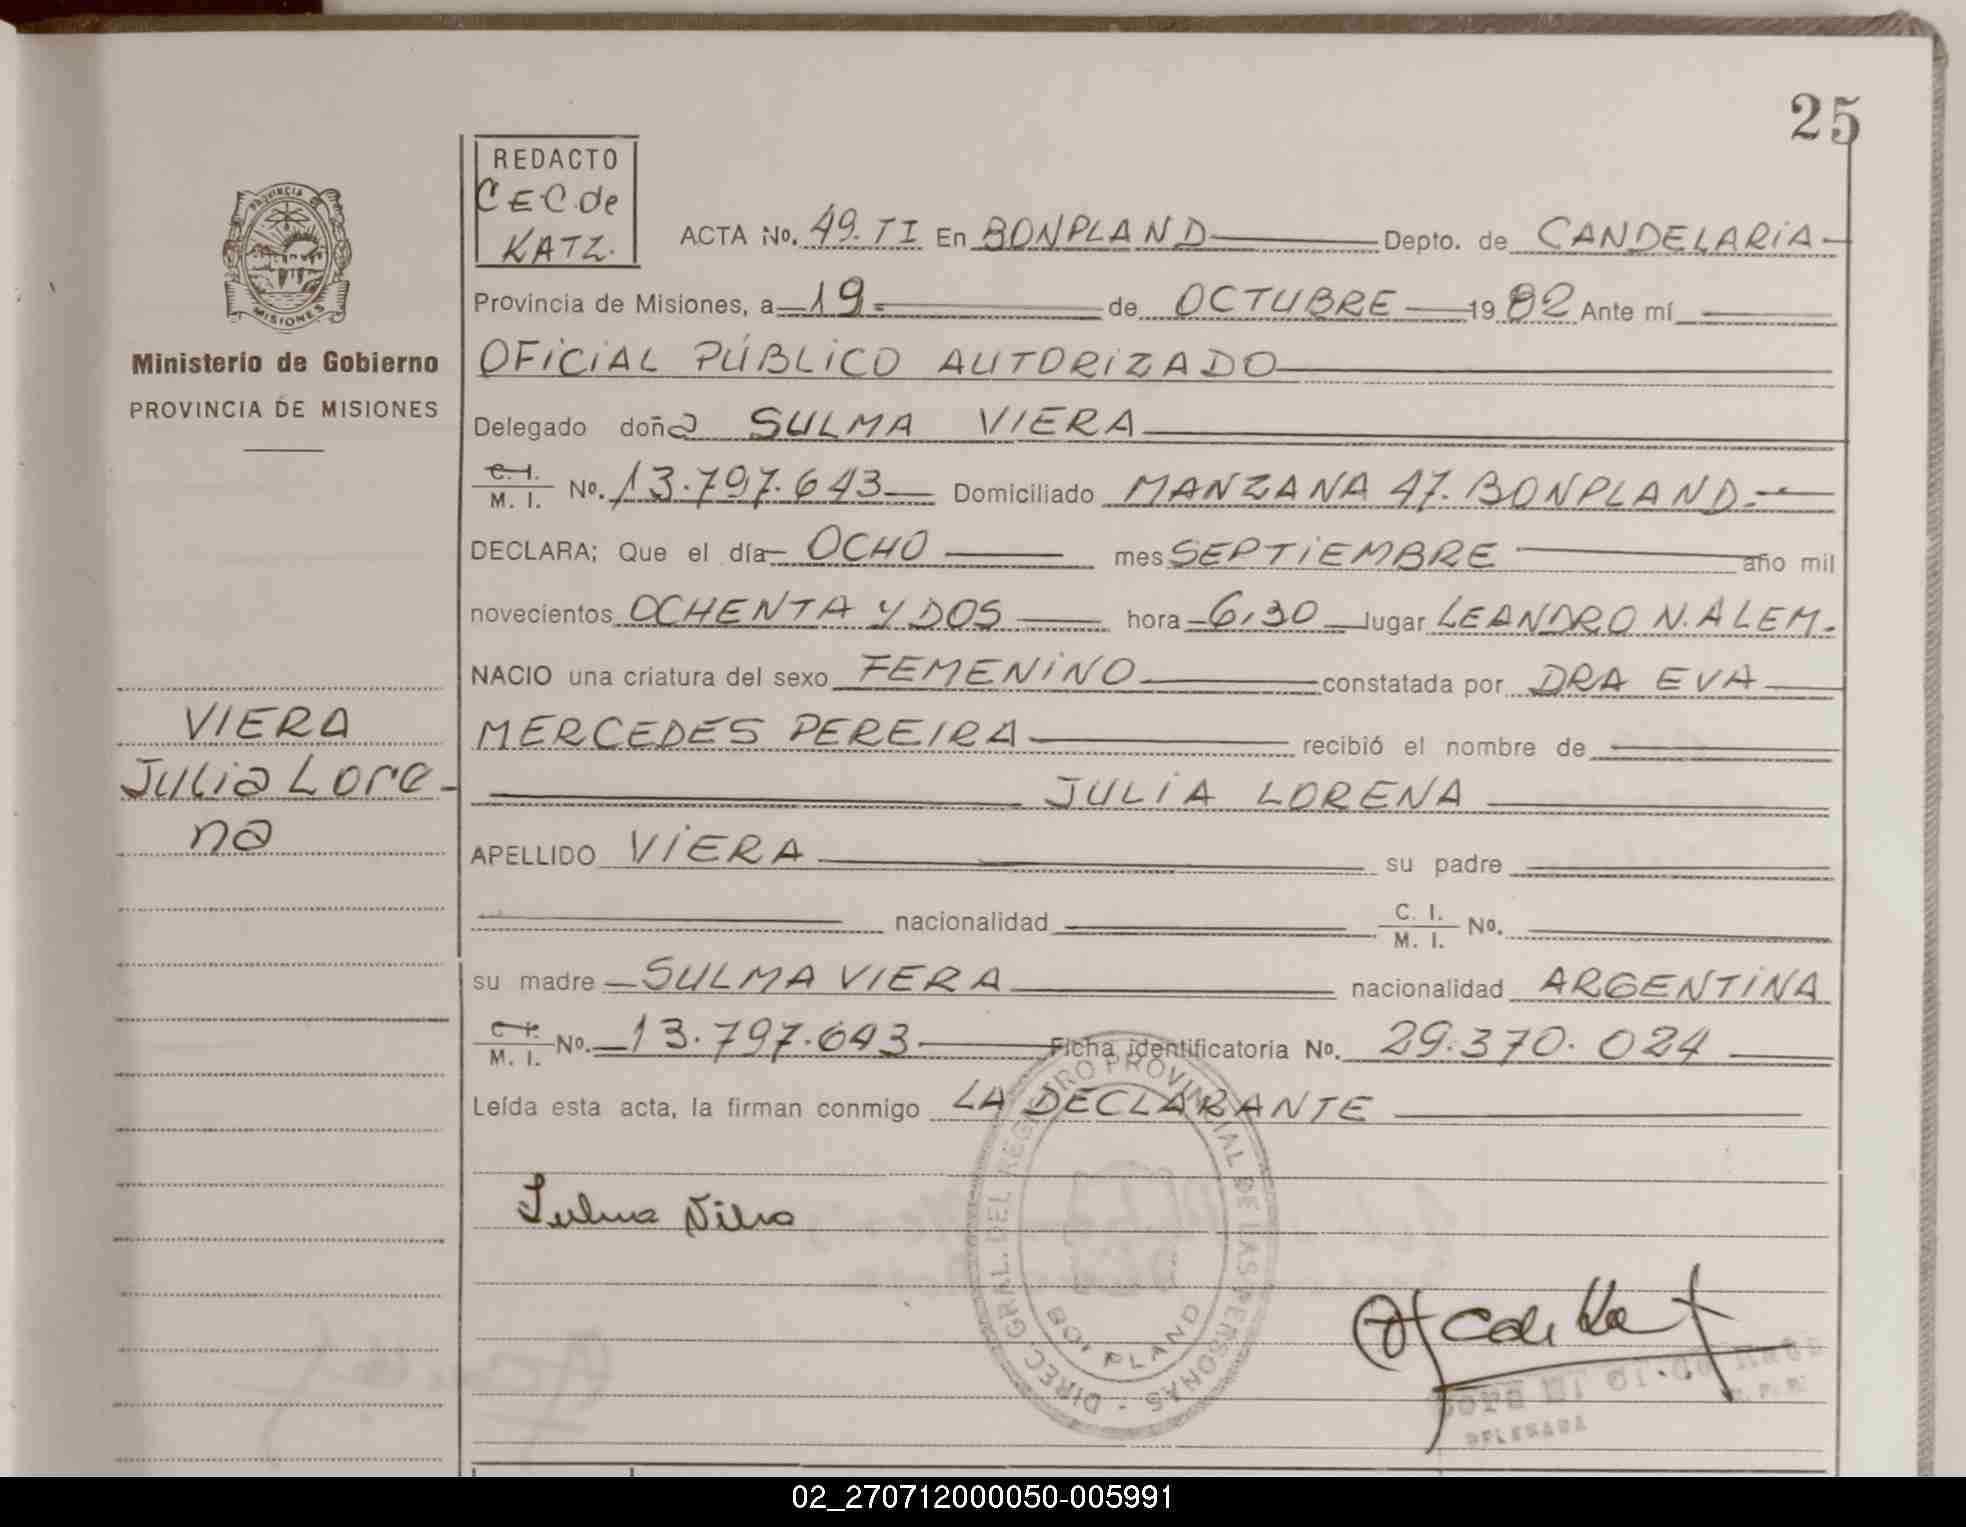 25
REDACTO
C.E.C. de
KATZ.
PROVINCIA DE
MISIONES
Ministerio de Gobierno
PROVINCIA DE MISIONES
ACTA No. 49. TI En BONPLAND Depto. de CANDELARIA
Provincia de Misiones, a 19 de OCTUBRE 1982 Ante mí
OFICIAL PÚBLICO AUTORIZADO
Delegado doña SULMA VIERA
C. I. / M. I. No. 13.797.643 Domiciliado MANZANA 47. BONPLAND.
DECLARA; Que el día OCHO mes SEPTIEMBRE año mil
novecientos OCHENTA Y DOS hora 6,30 lugar LEANDRO N. ALEM.
NACIO una criatura del sexo FEMENINO constatada por DRA EVA
MERCEDES PEREIRA recibió el nombre de
JULIA LORENA
VIERA
Julia Lore-
na
APELLIDO VIERA su padre
nacionalidad C. I. / M. I. No.
su madre SULMA VIERA nacionalidad ARGENTINA
C. I. / M. I. No. 13.797.643 Ficha identificatoria No. 29.370.024
Leída esta acta, la firman conmigo LA DECLARANTE
DIREC. GRAL. DEL REGISTRO PROVINCIAL DE LAS PERSONAS -
BONPLAND
DELEGADA
02_270712000050-005991